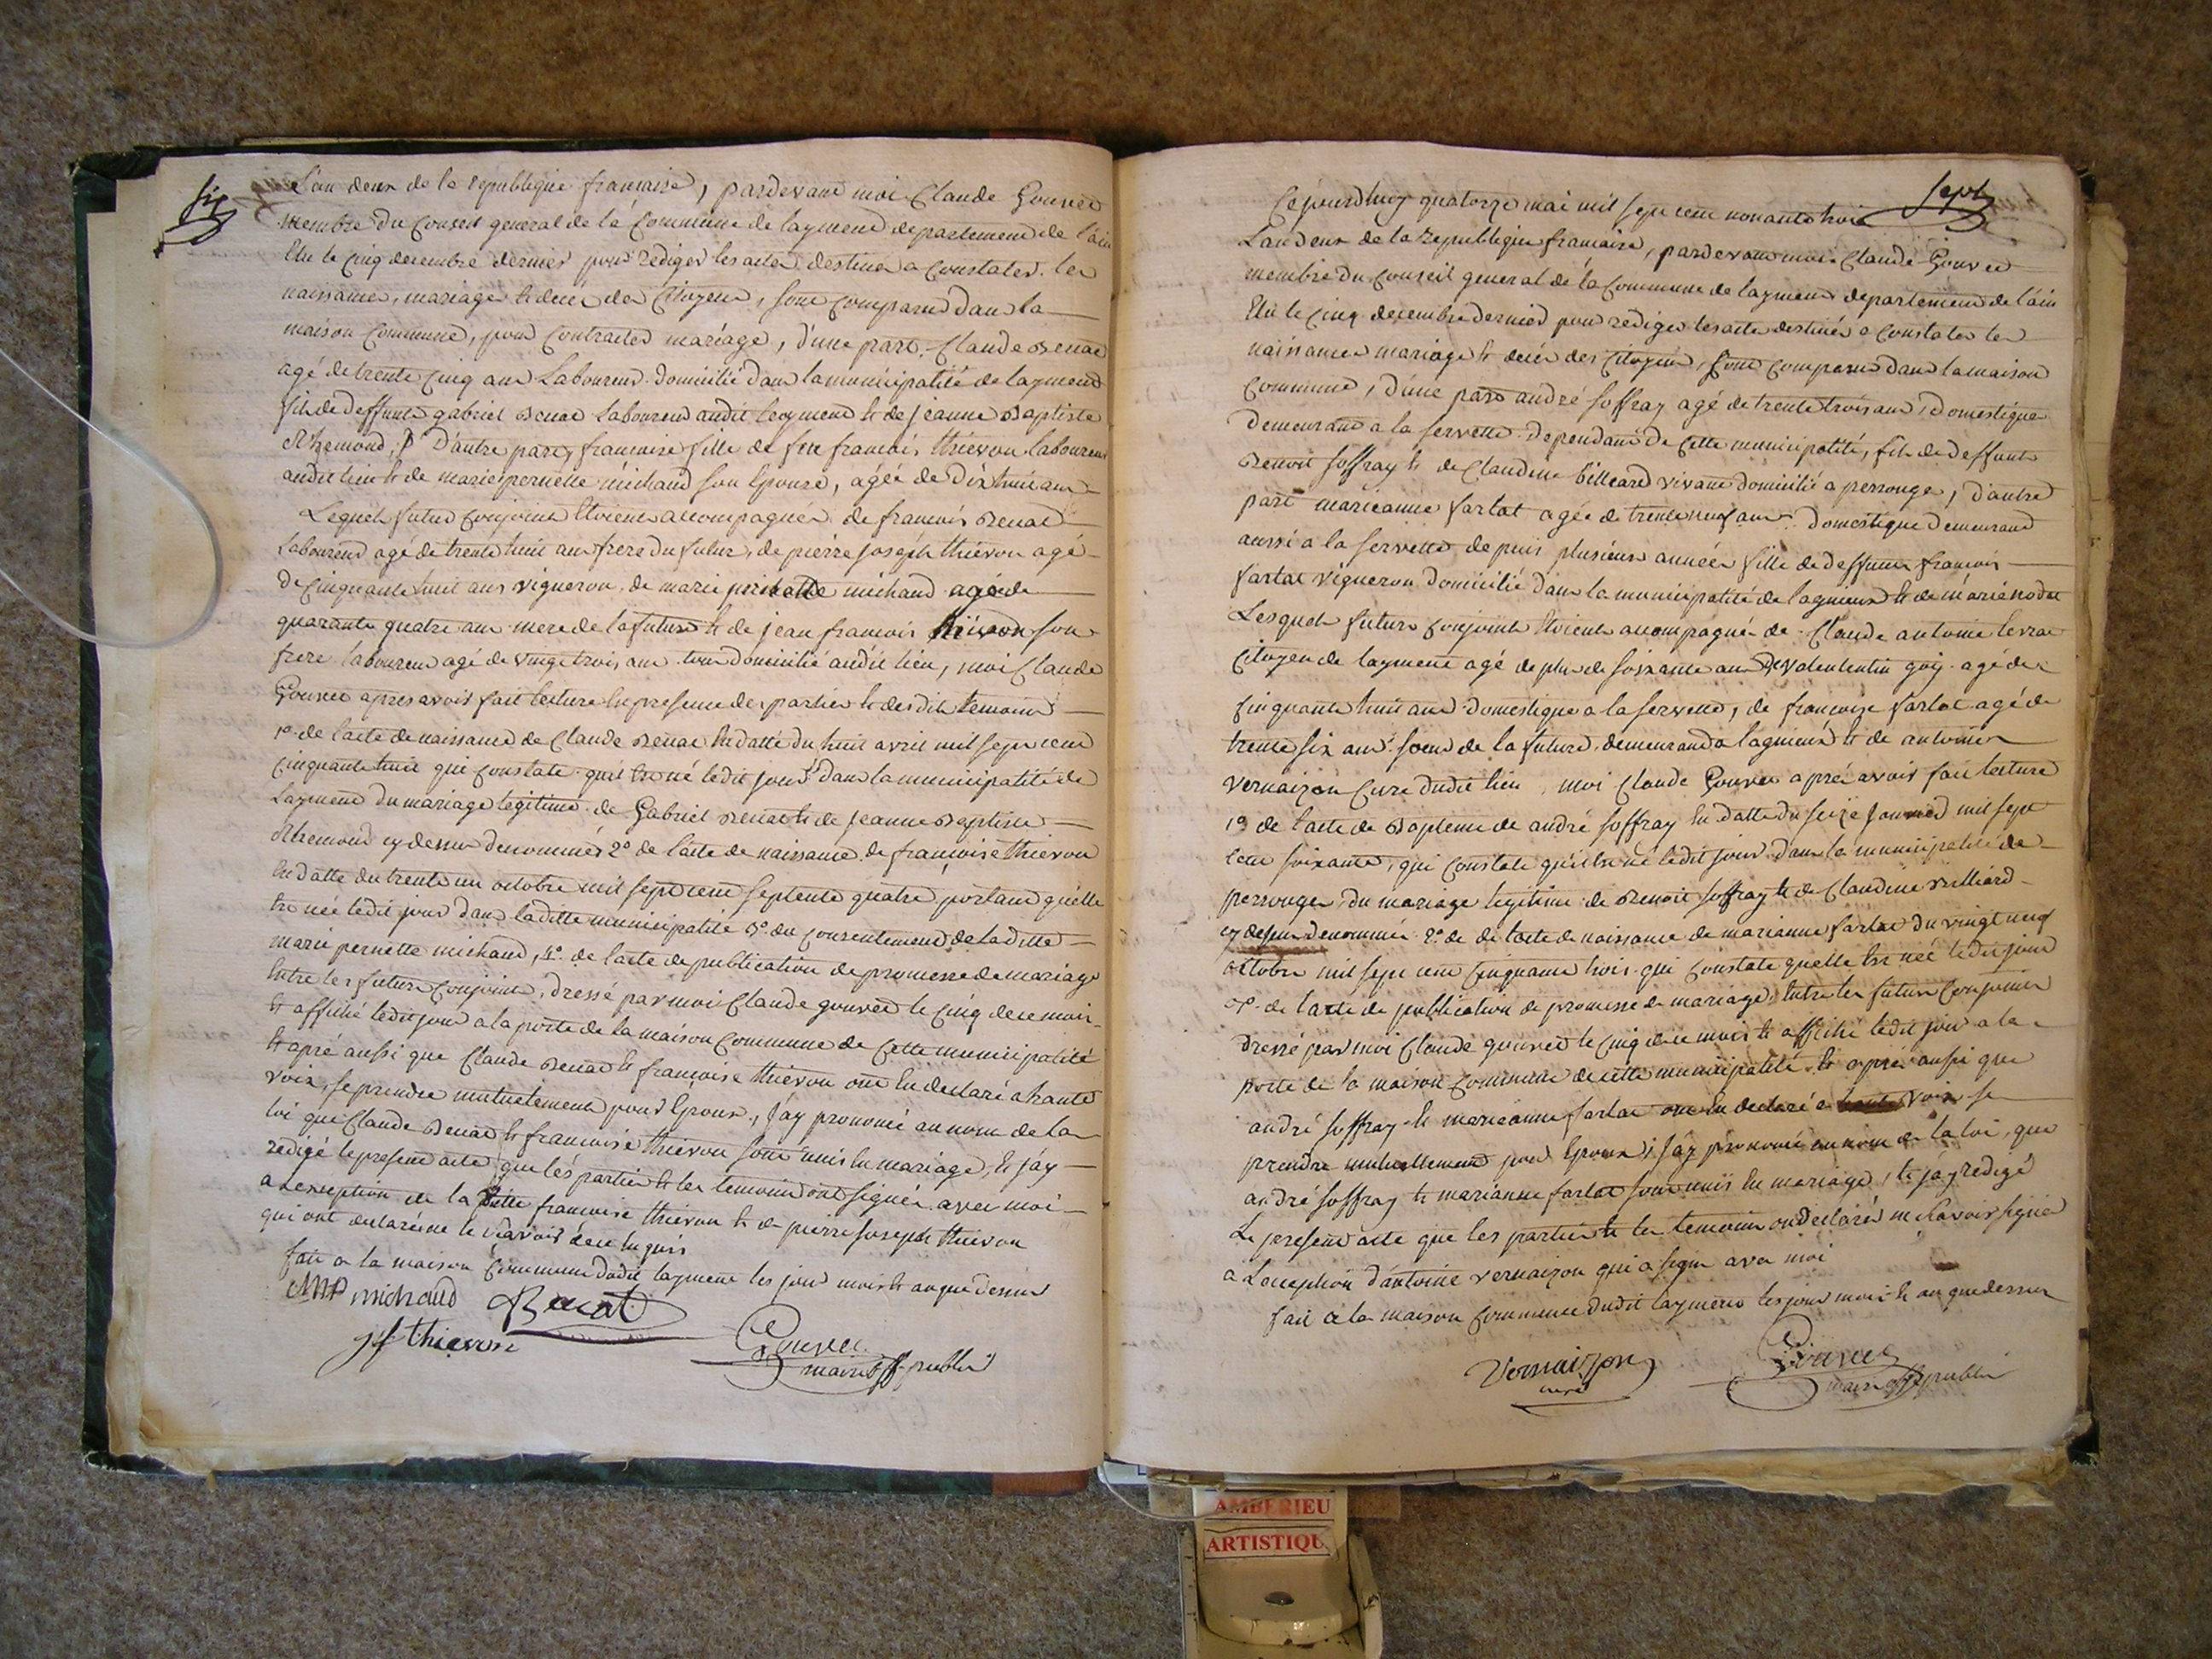 six
L'an deux de la republique francaise, pardevant moi Claude Gouvee
membre du Conseil general de la Commune de laymend departement de l'ain
Elu le cinq decembre dernier pour rediger les actes destines a constater les
naissances, mariages et deces des Citoyens, sont comparus dans la
maison Commune, pour contracter mariage, d'une part Claude Benac
agé de trente cinq ans Laboureur domicilié dans la municipalité de laymend
fils de deffunts gabriel Benac laboureur audit leyment et de jeanne Baptiste
Rhemond, D'autre part, francoise fille de feu francois thievon laboureur
audit lieu et de marie pernette michaud son Epouse, agée de dix huit ans
Lequels futurs conjoints Etoient accompagnés de francois Benac
laboureur agé de trente huit ans frere du futur, de pierre joseph thievon agé
de cinquante huit ans vigneron, de marie pernette michaud agée de
quarante quatre ans mere de la future et de jean francois thievon son
frere laboureur agé de vingt trois ans tous domicilié audit lieu, moi Claude
Gouvee apres avoir fait lecture En presence des parties et desdits temoins
1º de l'acte de naissance de Claude Benac En datte du huit avril mil sept cent
cinquante huit qui constate qu'il Est né ledit jour dans la municipalité de
Laymend du mariage legitime de Gabriel Benac et de jeanne Baptiste
Rhemond cy dessus denommés 2º de l'acte de naissance de francoise thievon
En datte du trente un octobre mil sept cent septente quatre portand qu'elle
Est née ledit jour dans laditte municipalité 3º du consentement de laditte
marie pernette michaud, 4º de l'acte de publication de promesse de mariage
Entre les futurs conjoints, dressé par moi Claude gouvee le cinq de ce mois
et affiché ledit jour a la porte de la maison Commune de Cette municipalité
Et apré aussi que Claude Benac et françoise thievon ont Eu declaré a haute
voix, se prendre mutuellement pour Epoux, j'ay prononcé au nom de la
loi que Claude Benac et francoise thievon sont unis En mariage, Et j'ay
redigé le present acte que les parties et les temoins ont signés avec moi
a l'exception de la ditte francoise thievon et de pierre joseph thievon
qui ont declarés ne le savoir de ce Enquis
fait a la maison Commune dudit layment les jour mois et an que dessus
MP michaud Benat
jf thievon Gouvee
maire off publi
sept
Cejourdhuy quatorze mai mil sept cent nonante trois
L'an deux de la Republique francaise, pardevant moi Claude Gouvee
membre du Conseil general de la Commune de laymend departement de l'ain
Elu le cinq decembre dernier pour rediger les actes destinés a constater les
naissances mariages et deces des Citoyens, sont comparus dans la maison
Commune, d'une part andré soffray agé de trente trois ans, Domestique
Demeurant a la servette dependant de Cette municipalité, fils de deffunts
Benoit soffray et de Claudine billeard vivant domicilié a perrouge, d'autre
part marieanne farlat agée de trente neuf ans Domestique demeurand
aussi a la servette depuis plusieurs années fille de deffunts francois
farlat vigneron domicilié dans la municipalité de lagnieux et de marie nodet
Lesquels futurs conjoints Etoient accompagné de Claude antoine levrat
Citoyen de layment agé de plus de soixante ans De Valentin goy agé de
cinquante huit ans domestique a la servette, de françoise farlat agé de
trente six ans soeur de la future demeurand a lagnieux et de antoine
vernaizon Cure dudit lieu, moi Claude Gouvee apré avoir fait lecture
1º de l'acte de Bapteme de andré soffray En datte du seize janvier mil sept
cent soixante, qui constate qu'il Est né ledit jour dans la municipalité de
perrouge, du mariage legitime de Benoit soffray et de Claudine Billiard
cy dessus denommés 2º de l'acte de naissance de marianne farlat du vingt neuf
octobre mil sept cent cinquante trois qui constate quelle Est née ledit jour
3º de l'acte de publication de promesse de mariage Entre les futurs conjoints
dressé par moi Claude gouvee le cinq de ce mois et affiché ledit jour a la
porte de la maison Commune de cette municipalité et apré aussi que
andré soffray et marieanne farlat ont Eu declaré a haute voix se
prendre mutuellement pour Epoux, j'ay prononcé au nom de la loi, que
andré soffray et marianne farlat sont unis En mariage, et j'ay redigé
Le present acte que les parties et les temoins ont declarés ne savoir signer
a l'exception d'antoine vernaizon qui a signé avec moi
fait a la maison Commune dudit layment les jour mois et an que dessus
Vernaizon Gouvee
curé maire off publi
AMBERIEU
ARTISTIQU